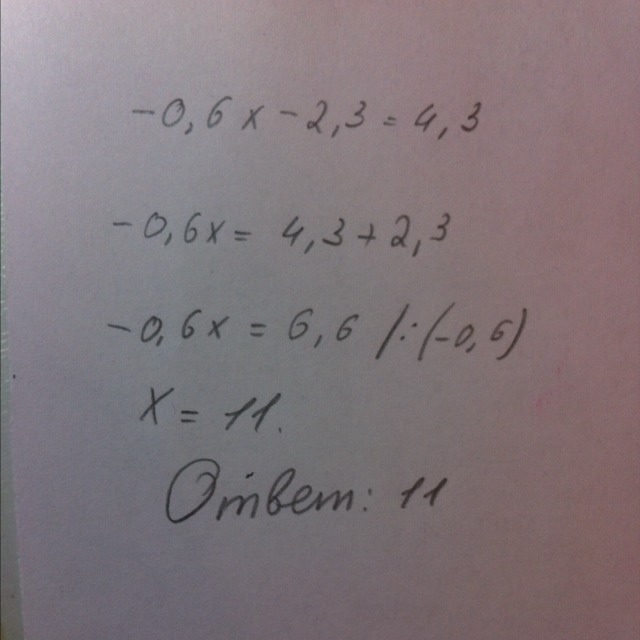 -0,6x-2,3=4,3
-0,6x= 4,3+2,3
-0,6x = 6,6 /:(-0,6)
X = 11.
Ответ: 11